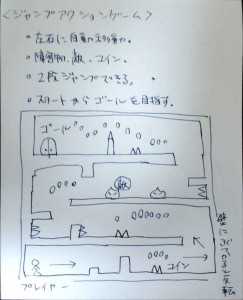 <ジャンプアクションゲーム>
・左右に自動で移動。
・障害物、敵、コイン。
・2段ジャンプできる。
・スタートからゴールを目指す。
ゴール
敵
壁にぶつかると反転
コイン
プレイヤー